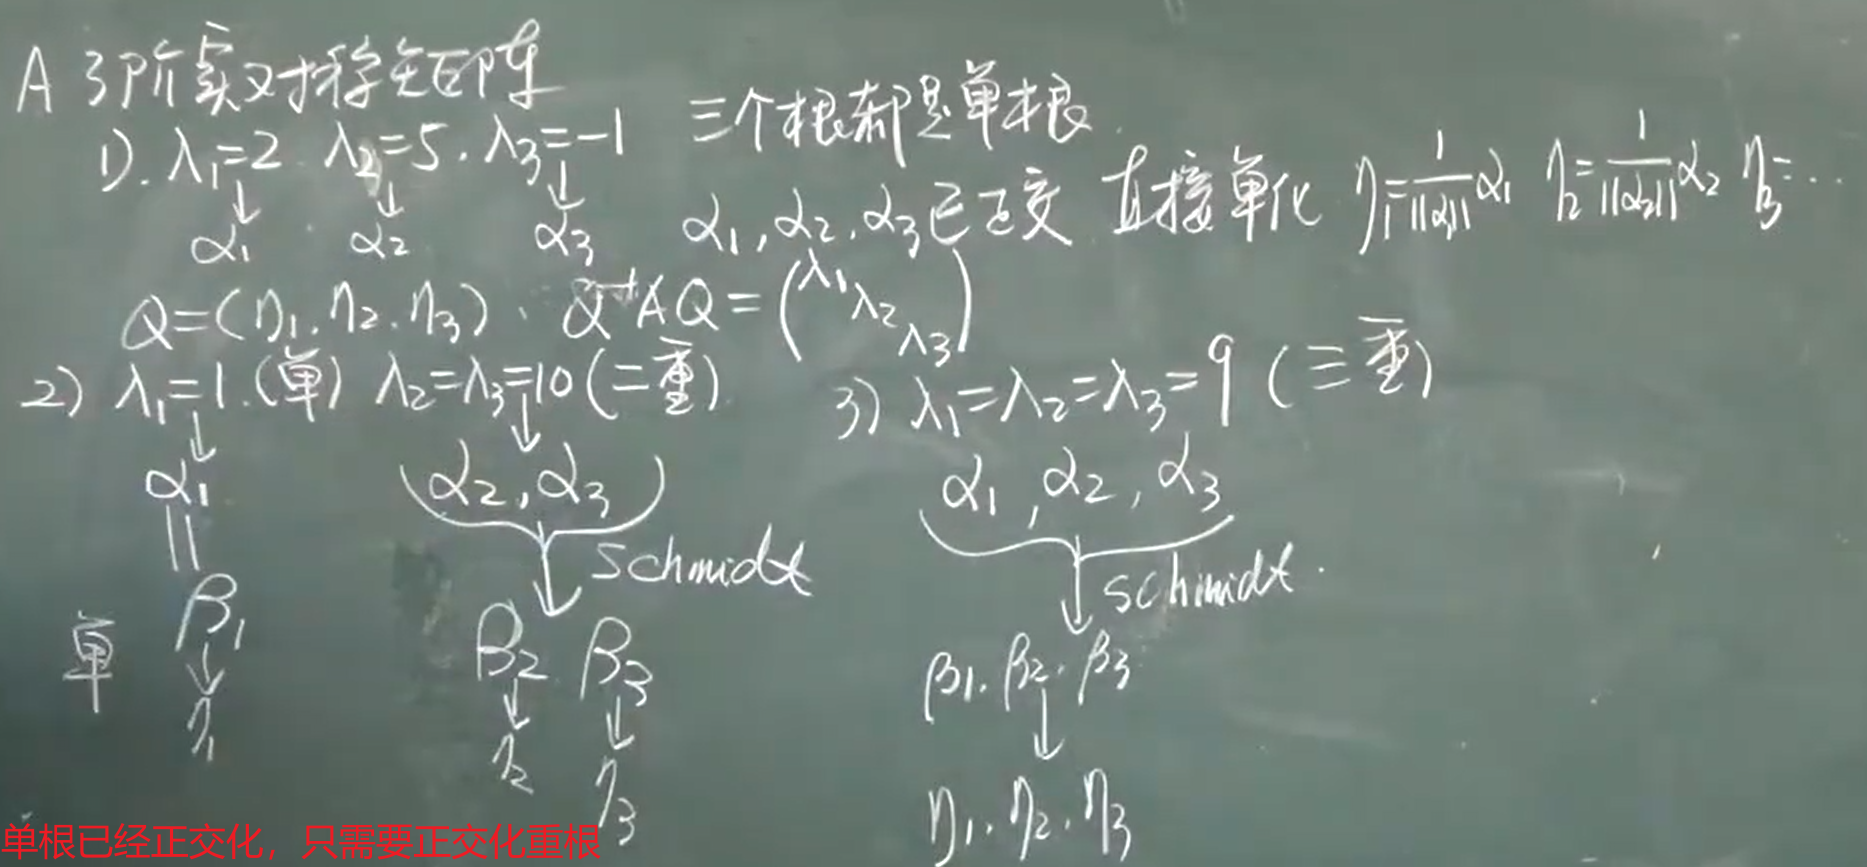 A 3阶实对称矩阵
1). λ₁=2. λ₂=5. λ₃=-1 三个根都是单根.
↓ ↓ ↓
α₁ α₂ α₃ α₁, α₂, α₃已正交 直接单化 η₁=1/||α₁|| α₁ η₂=1/||α₂|| α₂ η₃=...
Q=(η₁. η₂. η₃). Q⁻¹AQ=(λ₁ λ₂ λ₃)
2) λ₁=1.(单) λ₂=λ₃=10(二重)
↓ ↓
α₁ (α₂, α₃)
|| ↓ schmidt
β₁ β₂ β₃
单 ↓ ↓ ↓
η₁ η₂ η₃
3) λ₁=λ₂=λ₃=9 (三重)
α₁, α₂, α₃
↓ schimidt.
β₁. β₂. β₃
↓
η₁. η₂. η₃
单根已经正交化，只需要正交化重根